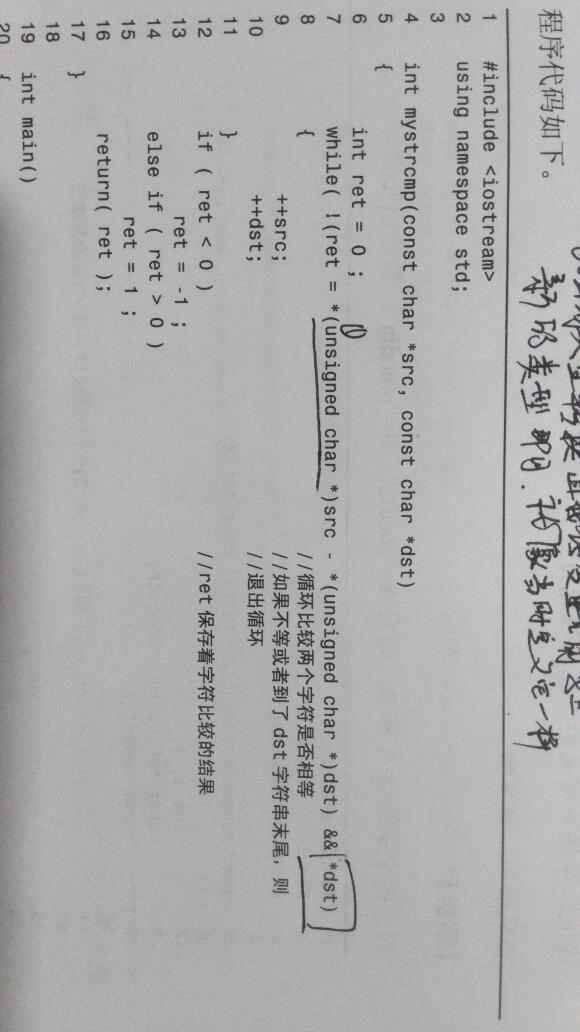 程序代码如下。
新的类型即可.
1 #include <iostream>
2 using namespace std;
3
4 int mystrcmp(const char *src, const char *dst)
5 {
6 int ret = 0 ;
7 while( !(ret = *(unsigned char *)src - *(unsigned char *)dst) && *dst)
8 { //循环比较两个字符是否相等
9 ++src; //如果不等或者到了 dst 字符串末尾，则
10 ++dst; //退出循环
11 }
12 if ( ret < 0 ) //ret 保存着字符比较的结果
13 ret = -1 ;
14 else if ( ret > 0 )
15 ret = 1 ;
16 return( ret );
17 }
18
19 int main()
20 {